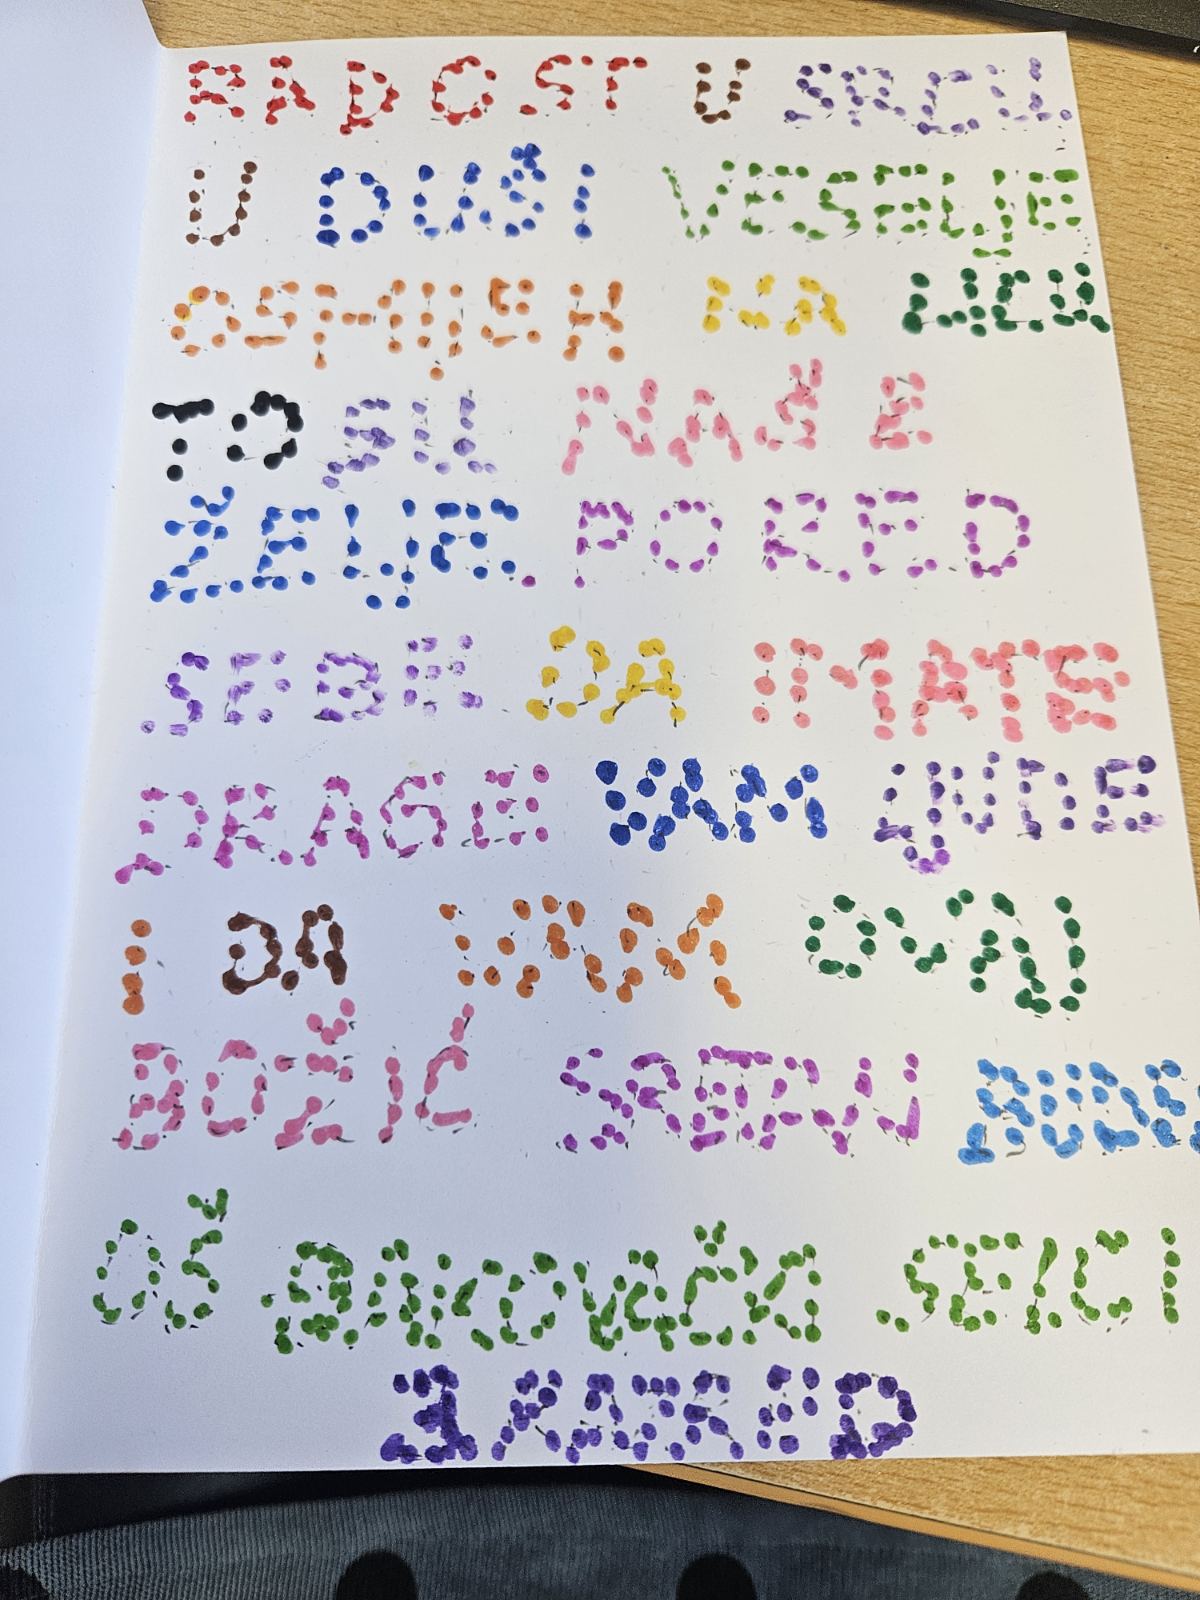 RADOST U SRCU
U DUŠI VESELJE
OSMIJEH NA LICU
TO SU NAŠE
ŽELJE. PORED
SEBE DA IMATE
DRAGE VAM LJUDE
I DA VAM OVAJ
BOŽIĆ SRETNIJI BUDE
OŠ ĐAKOVAČKI SELCI
3. RAZRED